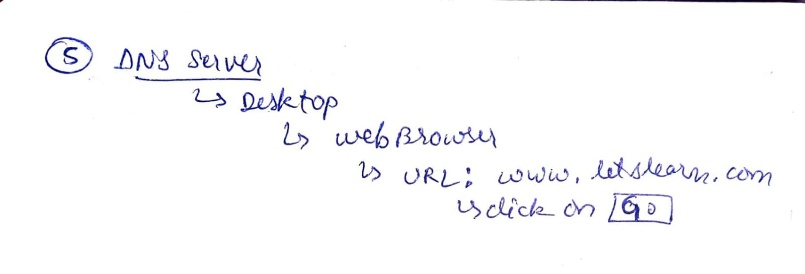 ⑤ DNS Server
↳ Desktop
↳ web Browser
↳ URL: www.letslearn.com
↳ click on Go